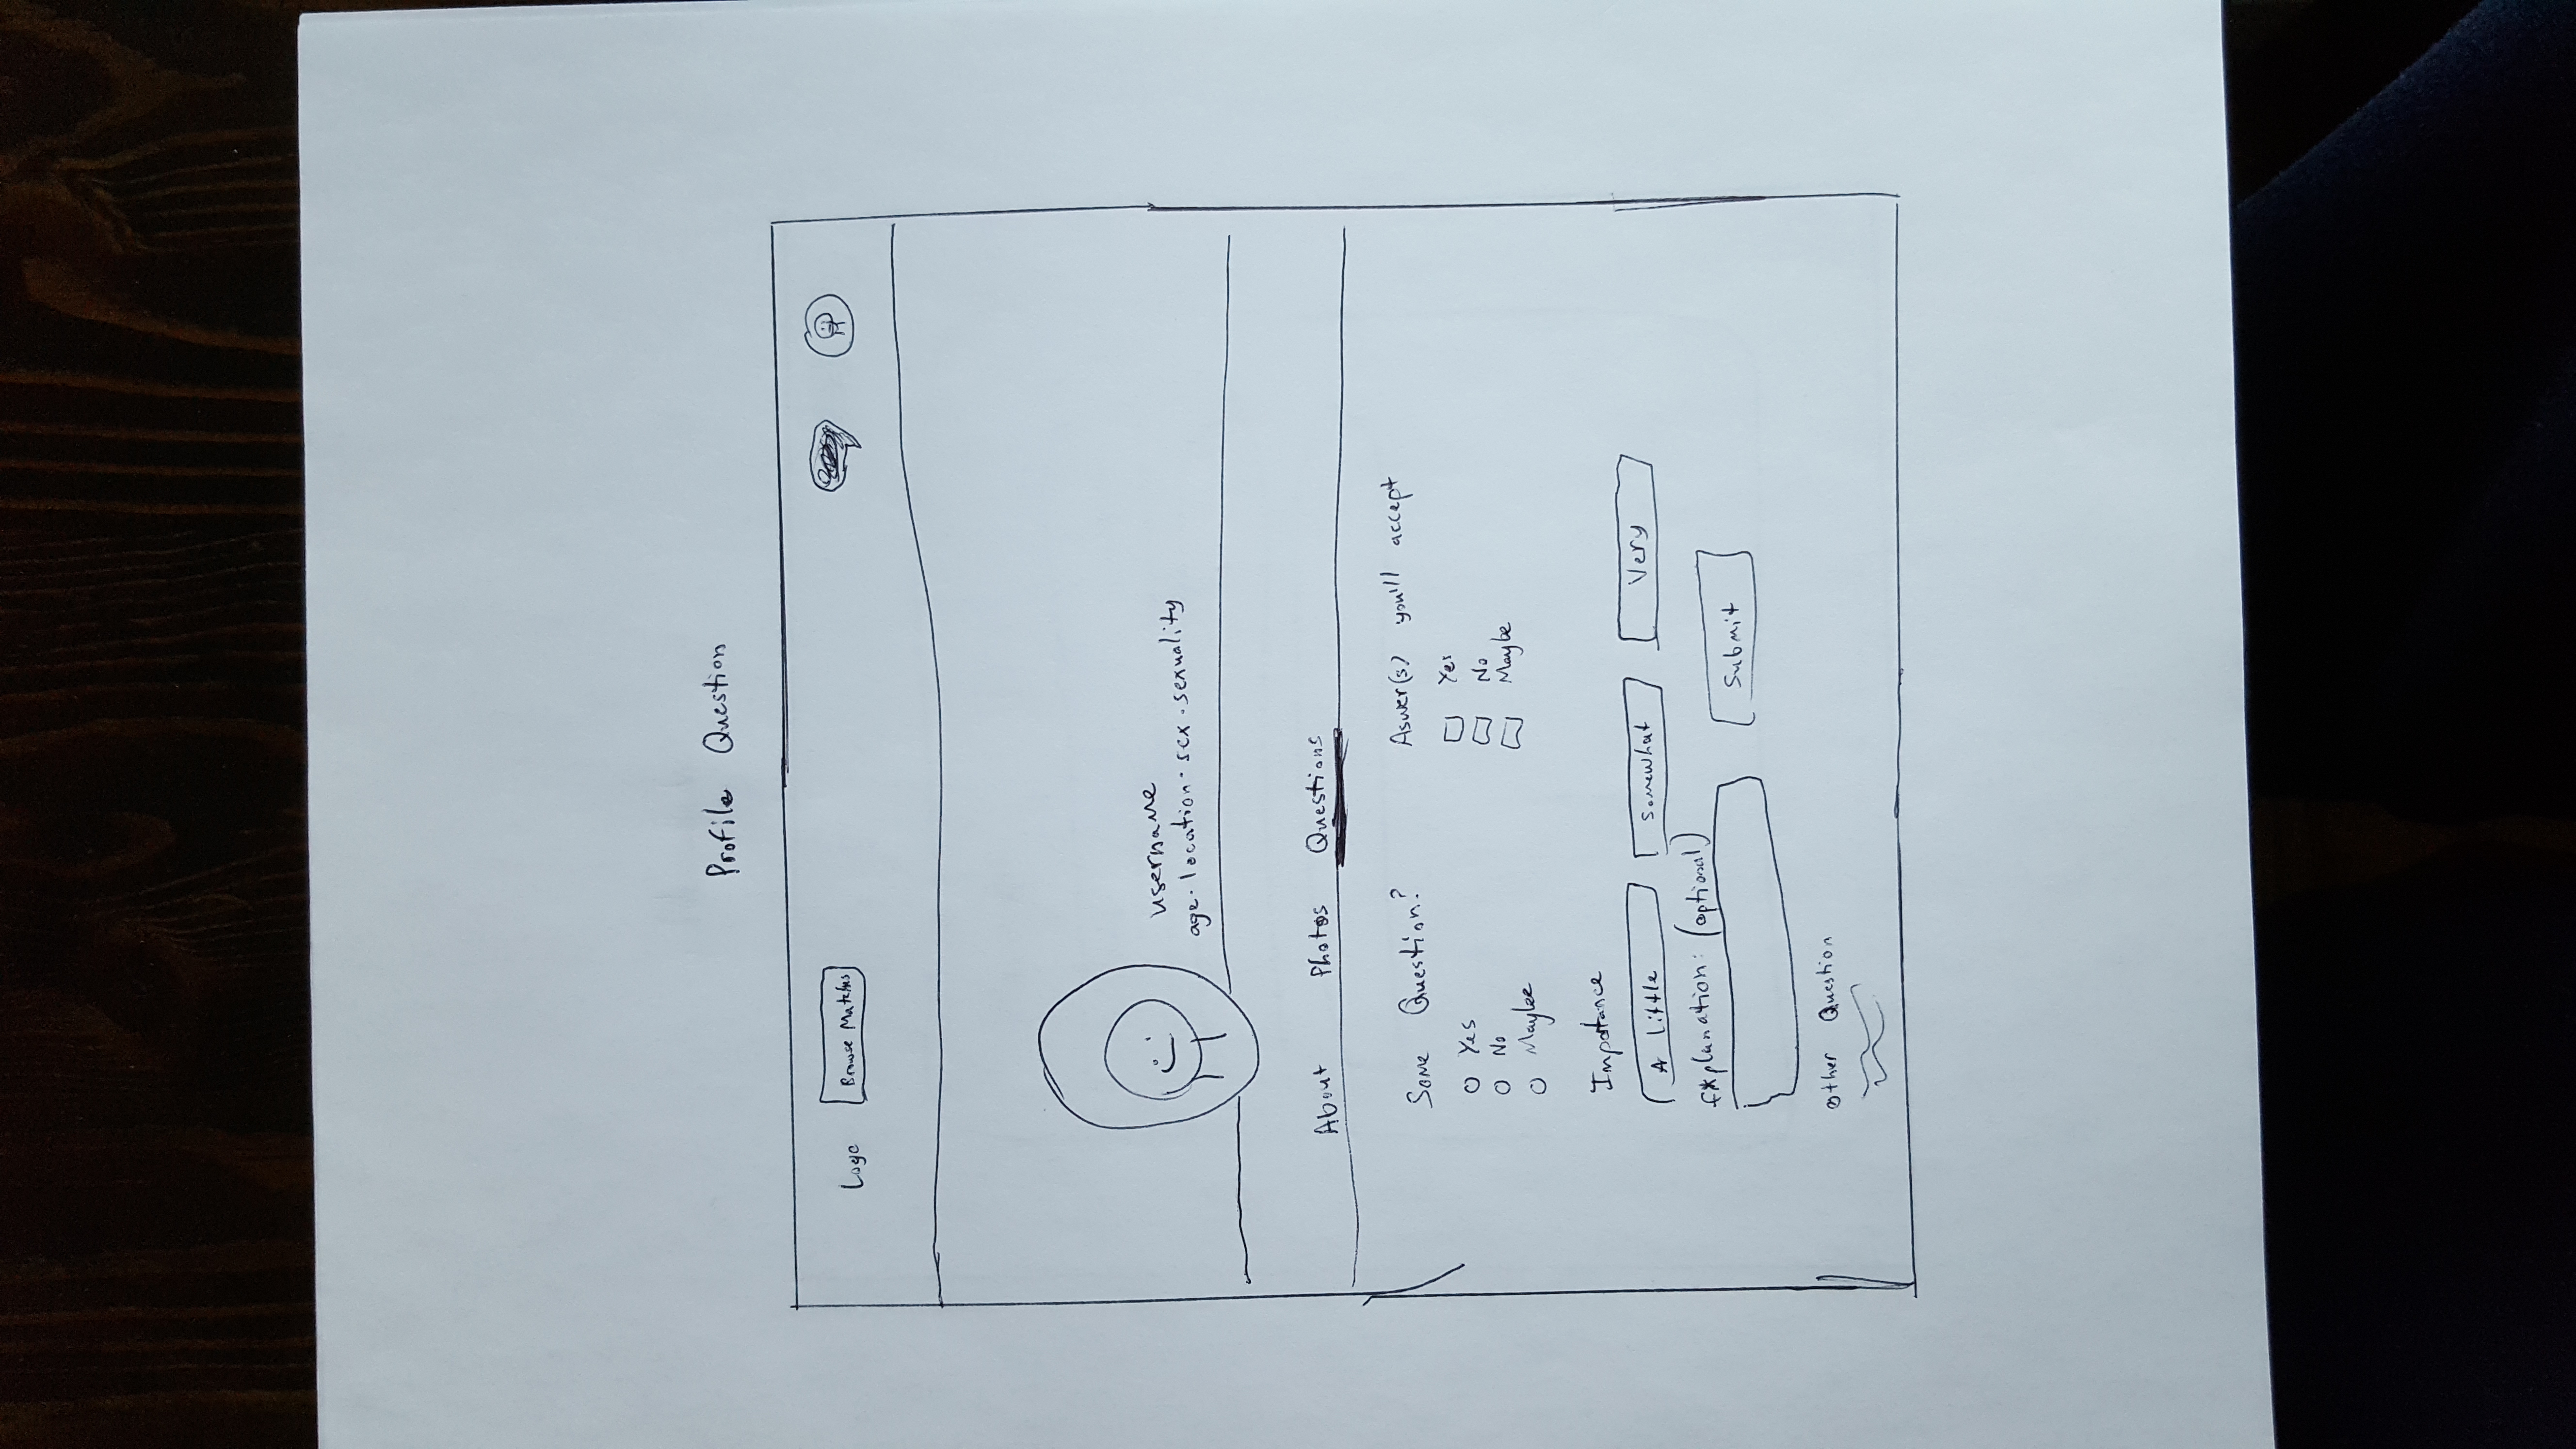 Profile Question
Logo
Browse Matches
username
age · location · sex · sexuality
About Photos Questions
Some Question?
Yes
No
Maybe
Aswer(s) you'll accept
Yes
No
Maybe
Importance
A little Somewhat Very
Explanation: (optional)
Submit
Other Question